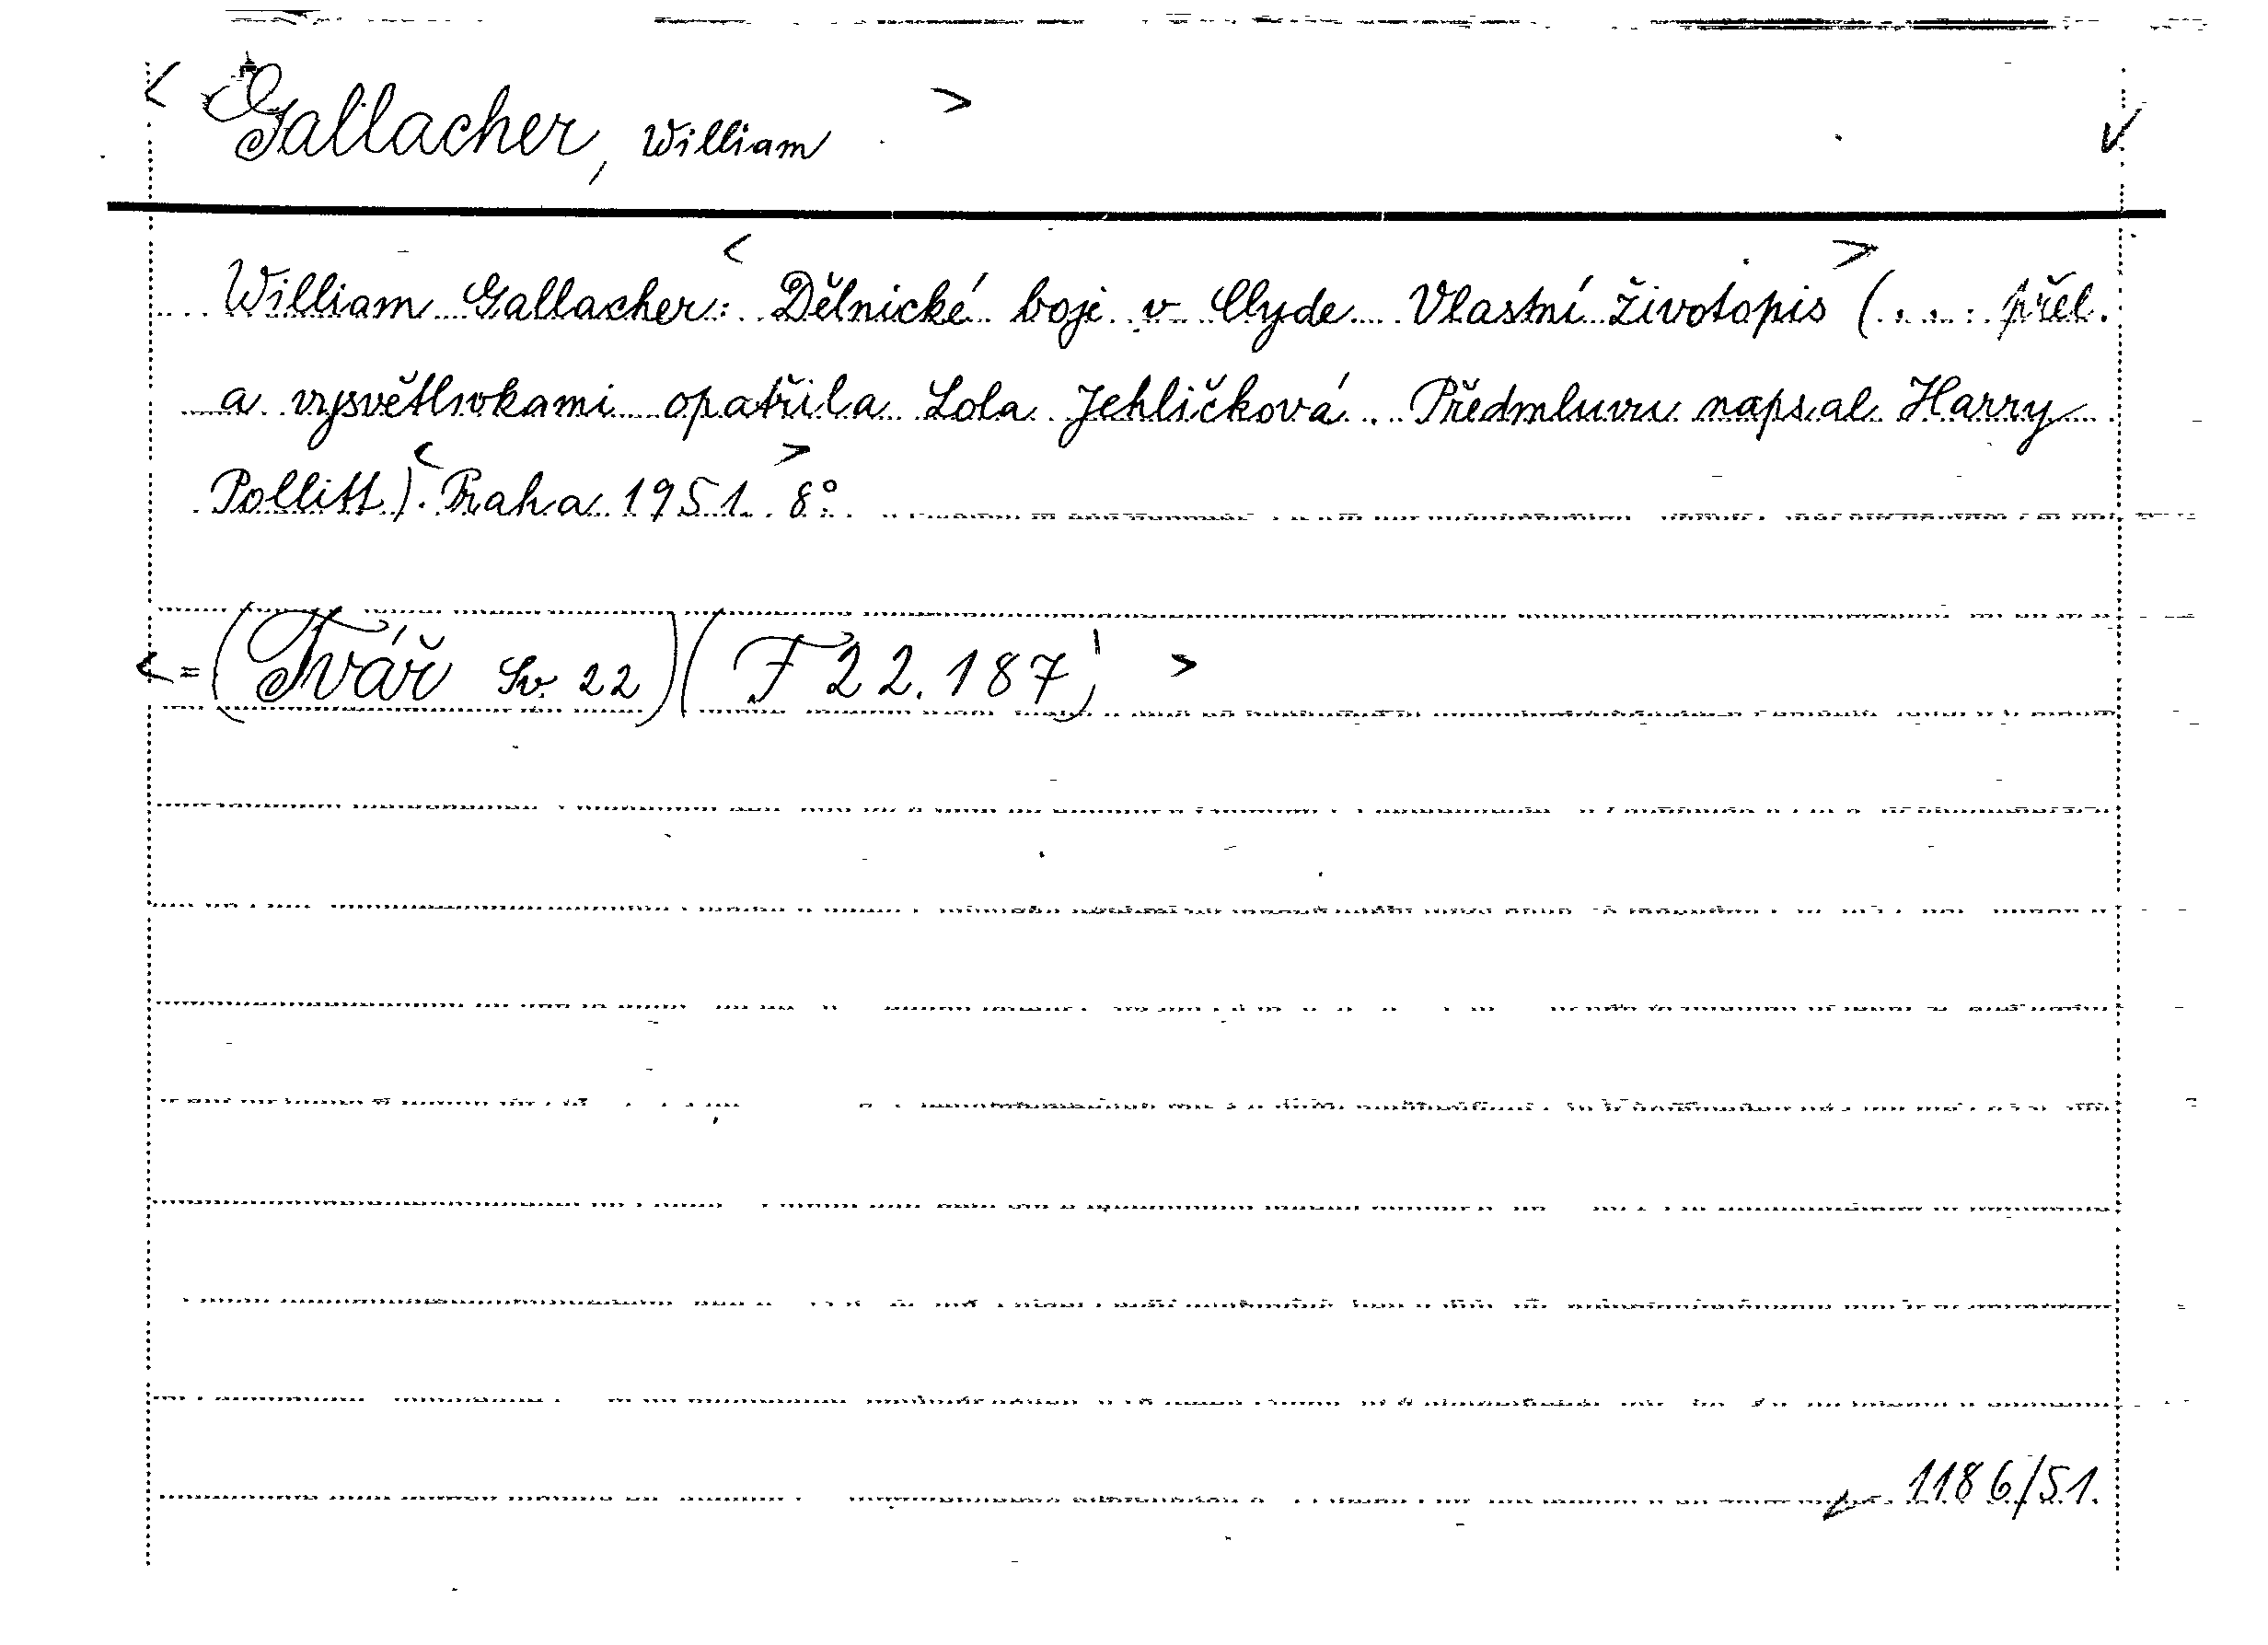 < Gallacher, William >
William Gallacher: < Dělnické boje v Clyde Vlastní životopis > (... přel.
a vysvětlivkami opatřila Lola Jehličková. Předmluvu napsal Harry
Pollitt). < Praha 1951. > 8°.
< = (Tvář Sv. 22) (F 22.187) >
1186/51.